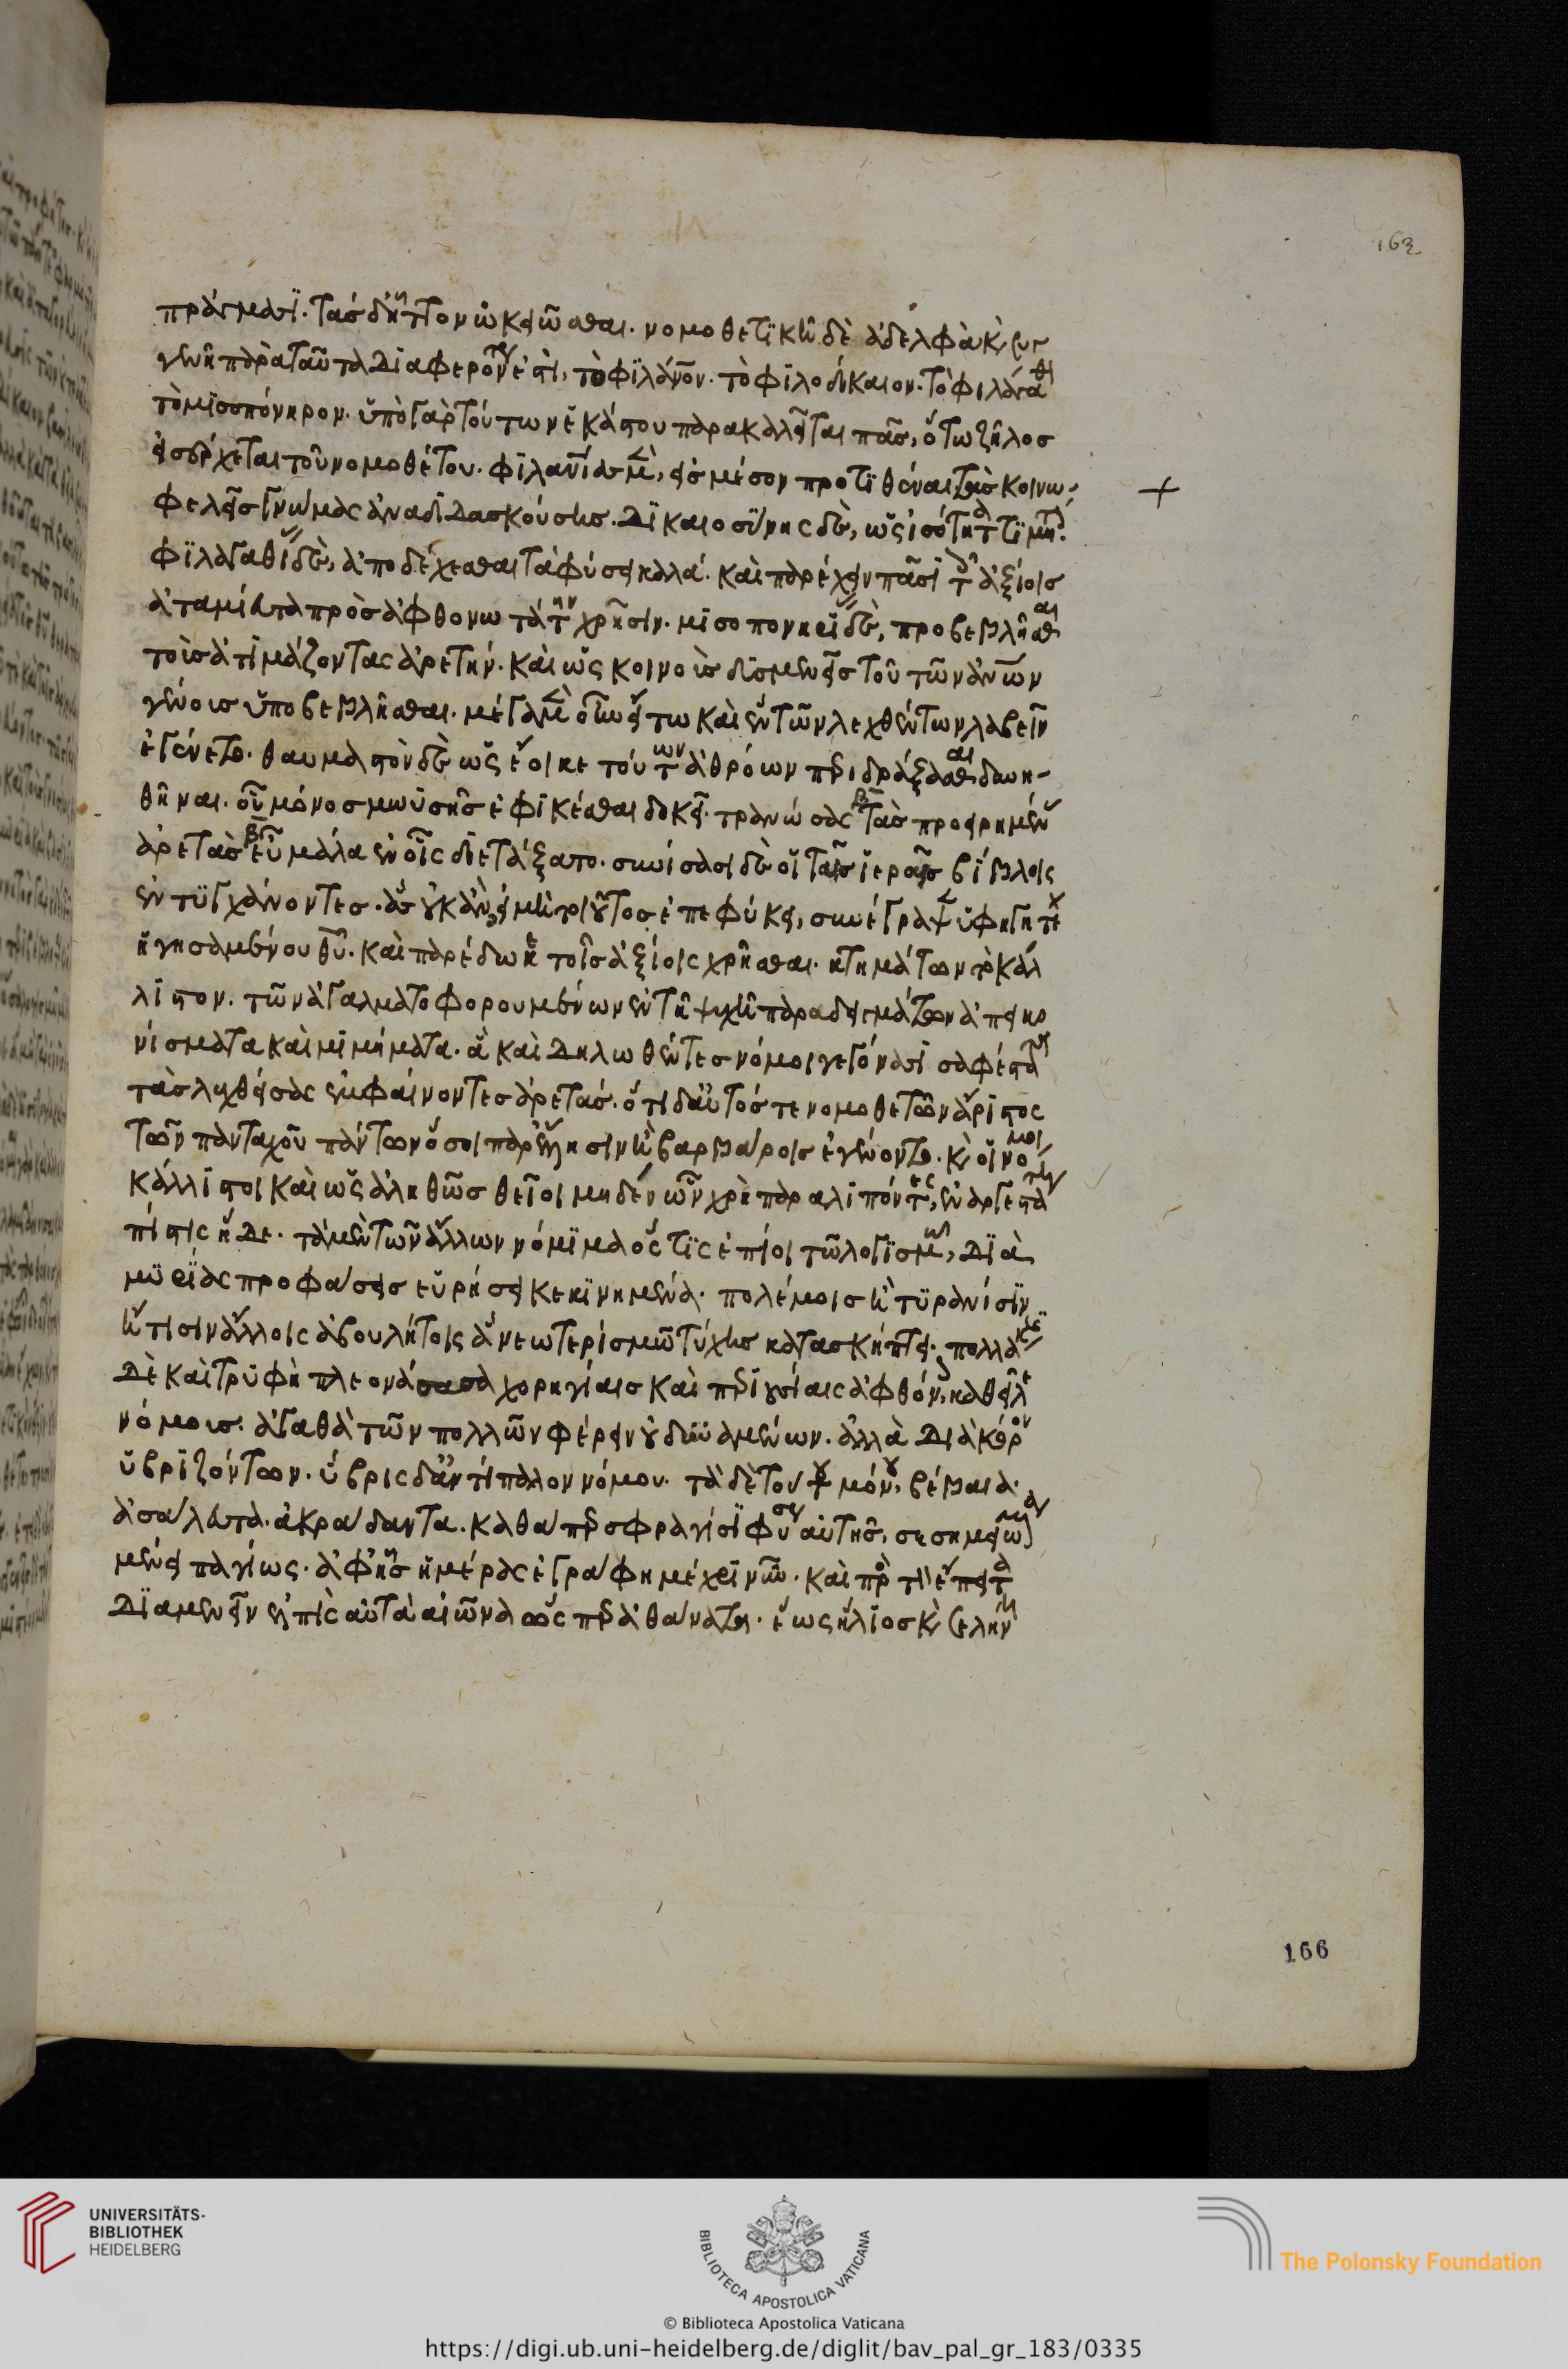 πράγμασϊ. τὰσ δ' ἧττον ὠκειῶσθαι. νομοθετϊκῆ δὲ ἀδελφὰ κ(αὶ) συγ
γενῆ παρὰ ταῦτα διαφερόντως ἐστι, τὸ φϊλάν(θρωπ)ον. τὸ φϊλοδίκαιον. τὸ φιλάγαθ
τὸ μϊσοπόνηρον. ὑπὸ γὰρ τούτων ἑκάστου παρακαλεῖται πᾶσ, ὅτω ζῆλοσ
εἰσέρχεται τοῦ νομοθέτου. φϊλαν(θρωπ)ίας μὲν, εἰσ μέσον προτϊθέναι τὰσ κοινω-
φελεῖσ γνώμας ἀναδιδασκούσησ. δϊκαιοσύνης δὲ, ὡς ἰσότητα τϊμη.
φϊλαγαθί(ας) δὲ, ἀποδέχεσθαι τὰ φύσει καλά. καὶ παρέχειν πᾶσϊ τοῖς ἀξίοισ
ἀταμίευτα πρὸσ ἀφθονωτάτην χρῆσιν. μϊσοπονηρί(ας) δὲ, προβεβλῆσθαι
τοὺσ ἀτιμάζοντας ἀρετήν. καὶ ὡς κοινοὺσ δϋσμενεῖσ τοῦ τῶν ἀν(θρώπ)ων
γένουσ ὑποβεβλῆσθαι. μέγα μὲν οὖν εἴ τω καὶ ἓν τῶν λεχθέντων λαβεῖν
ἐγένετο. θαυμαστὸν δὲ ὡς ἔοικε τούτων ἀθρόων περιδράξασθαι δυνη-
θῆναι. οὗ μόνοσ μωϋσῆσ ἐφϊκέσθαι δοκεῖ. τρανώσας τὰσ προειρημέν(ας)
ἀρετὰσ εὖ μάλα ἐν οἷς διετάξατο. συνίσασι δὲ οἱ ταῖσ ἱεραῖσ βίβλοις
ἐντϋγχάνοντεσ. ἃσ οὐκ ἂν, εἰ μὴ τοιοῦτοσ ἐπεφύκει, συνέγραψ(εν) ὑφηγητέ
ἡγησαμένου θ(εο)ῦ. καὶ παρέδωκε τοῖσ ἀξίοις χρῆσθαι. κτημάτων τὸ κάλ
λϊστον. τῶν ἀγαλματοφορουμένων ἐν τῆ ψυχῆ παραδειγμάτων ἀπεικο
νίσματα καὶ μϊμήματα. ἃ καὶ δηλωθέντεσ νόμοι γεγόνασϊ σαφέστατ(α)
τὰσ λεχθείσας ἐμφαίνοντεσ ἀρετάσ. ὅτι δ' αὐτόσ τε νομοθετῶν ἄριστος
τῶν πανταχοῦ πάντων ὅσοι παρ' ἕλλησιν ἢ βαρβάροισ ἐγένοντο. κ(αὶ) οἱ νόμοι
κάλλϊστοι καὶ ὡς ἀληθῶσ θεῖοι μηδὲν ὧν χρὴ παραλϊπόντες, ἐναργεστάτη
πίστις ἥδε. τὰ μὲν τῶν ἄλλων νόμϊμα ὅς τϊς ἐπίοι τῶ λογϊσμῶ, δϊὰ
μϋρίας προφάσεισ εὑρήσει κεκϊνημένα. πολέμοισ ἢ τϋραννίσϊν
ἤ τισιν ἄλλοις ἀβουλήτοις ἃ νεωτερισμῶ τύχησ κατασκήπτει. πολλάκις
δὲ καὶ τρϋφὴ πλεονάσασα χορηγίαισ καὶ περιουσίαις ἀφθόνοις καθεῖλε
νόμουσ. ἀγαθὰ τῶν πολλῶν φέρειν οὐ δυναμένων. ἀλλὰ διὰ κόρον
ὑβρϊζόντων. ὕβρις δ' ἀντίπαλον νόμου. τὰ δὲ τούτου μόνου, βέβαια.
ἀσάλευτα. ἀκράδαντα. καθάπερ σφραγίσϊ φύσεως αὐτῆσ, σεσημασ
μένα παγίως. ἀφ' ἧσ ἡμέρας ἐγράφη μέχρϊ νῦν. καὶ πρὸ(σ) τὰ ἔπειτα
δϊαμενεῖν ἐλπὶς αὐτὰ αἰῶνα ὥσπερ ἀθάνατα. ἕως ἥλϊοσ κ(αὶ) σελήνη
163
166
UNIVERSITÄTS-
BIBLIOTHEK
HEIDELBERG
BIBLIOTECA APOSTOLICA VATICANA
The Polonsky Foundation
© Biblioteca Apostolica Vaticana
https://digi.ub.uni-heidelberg.de/diglit/bav_pal_gr_183/0335